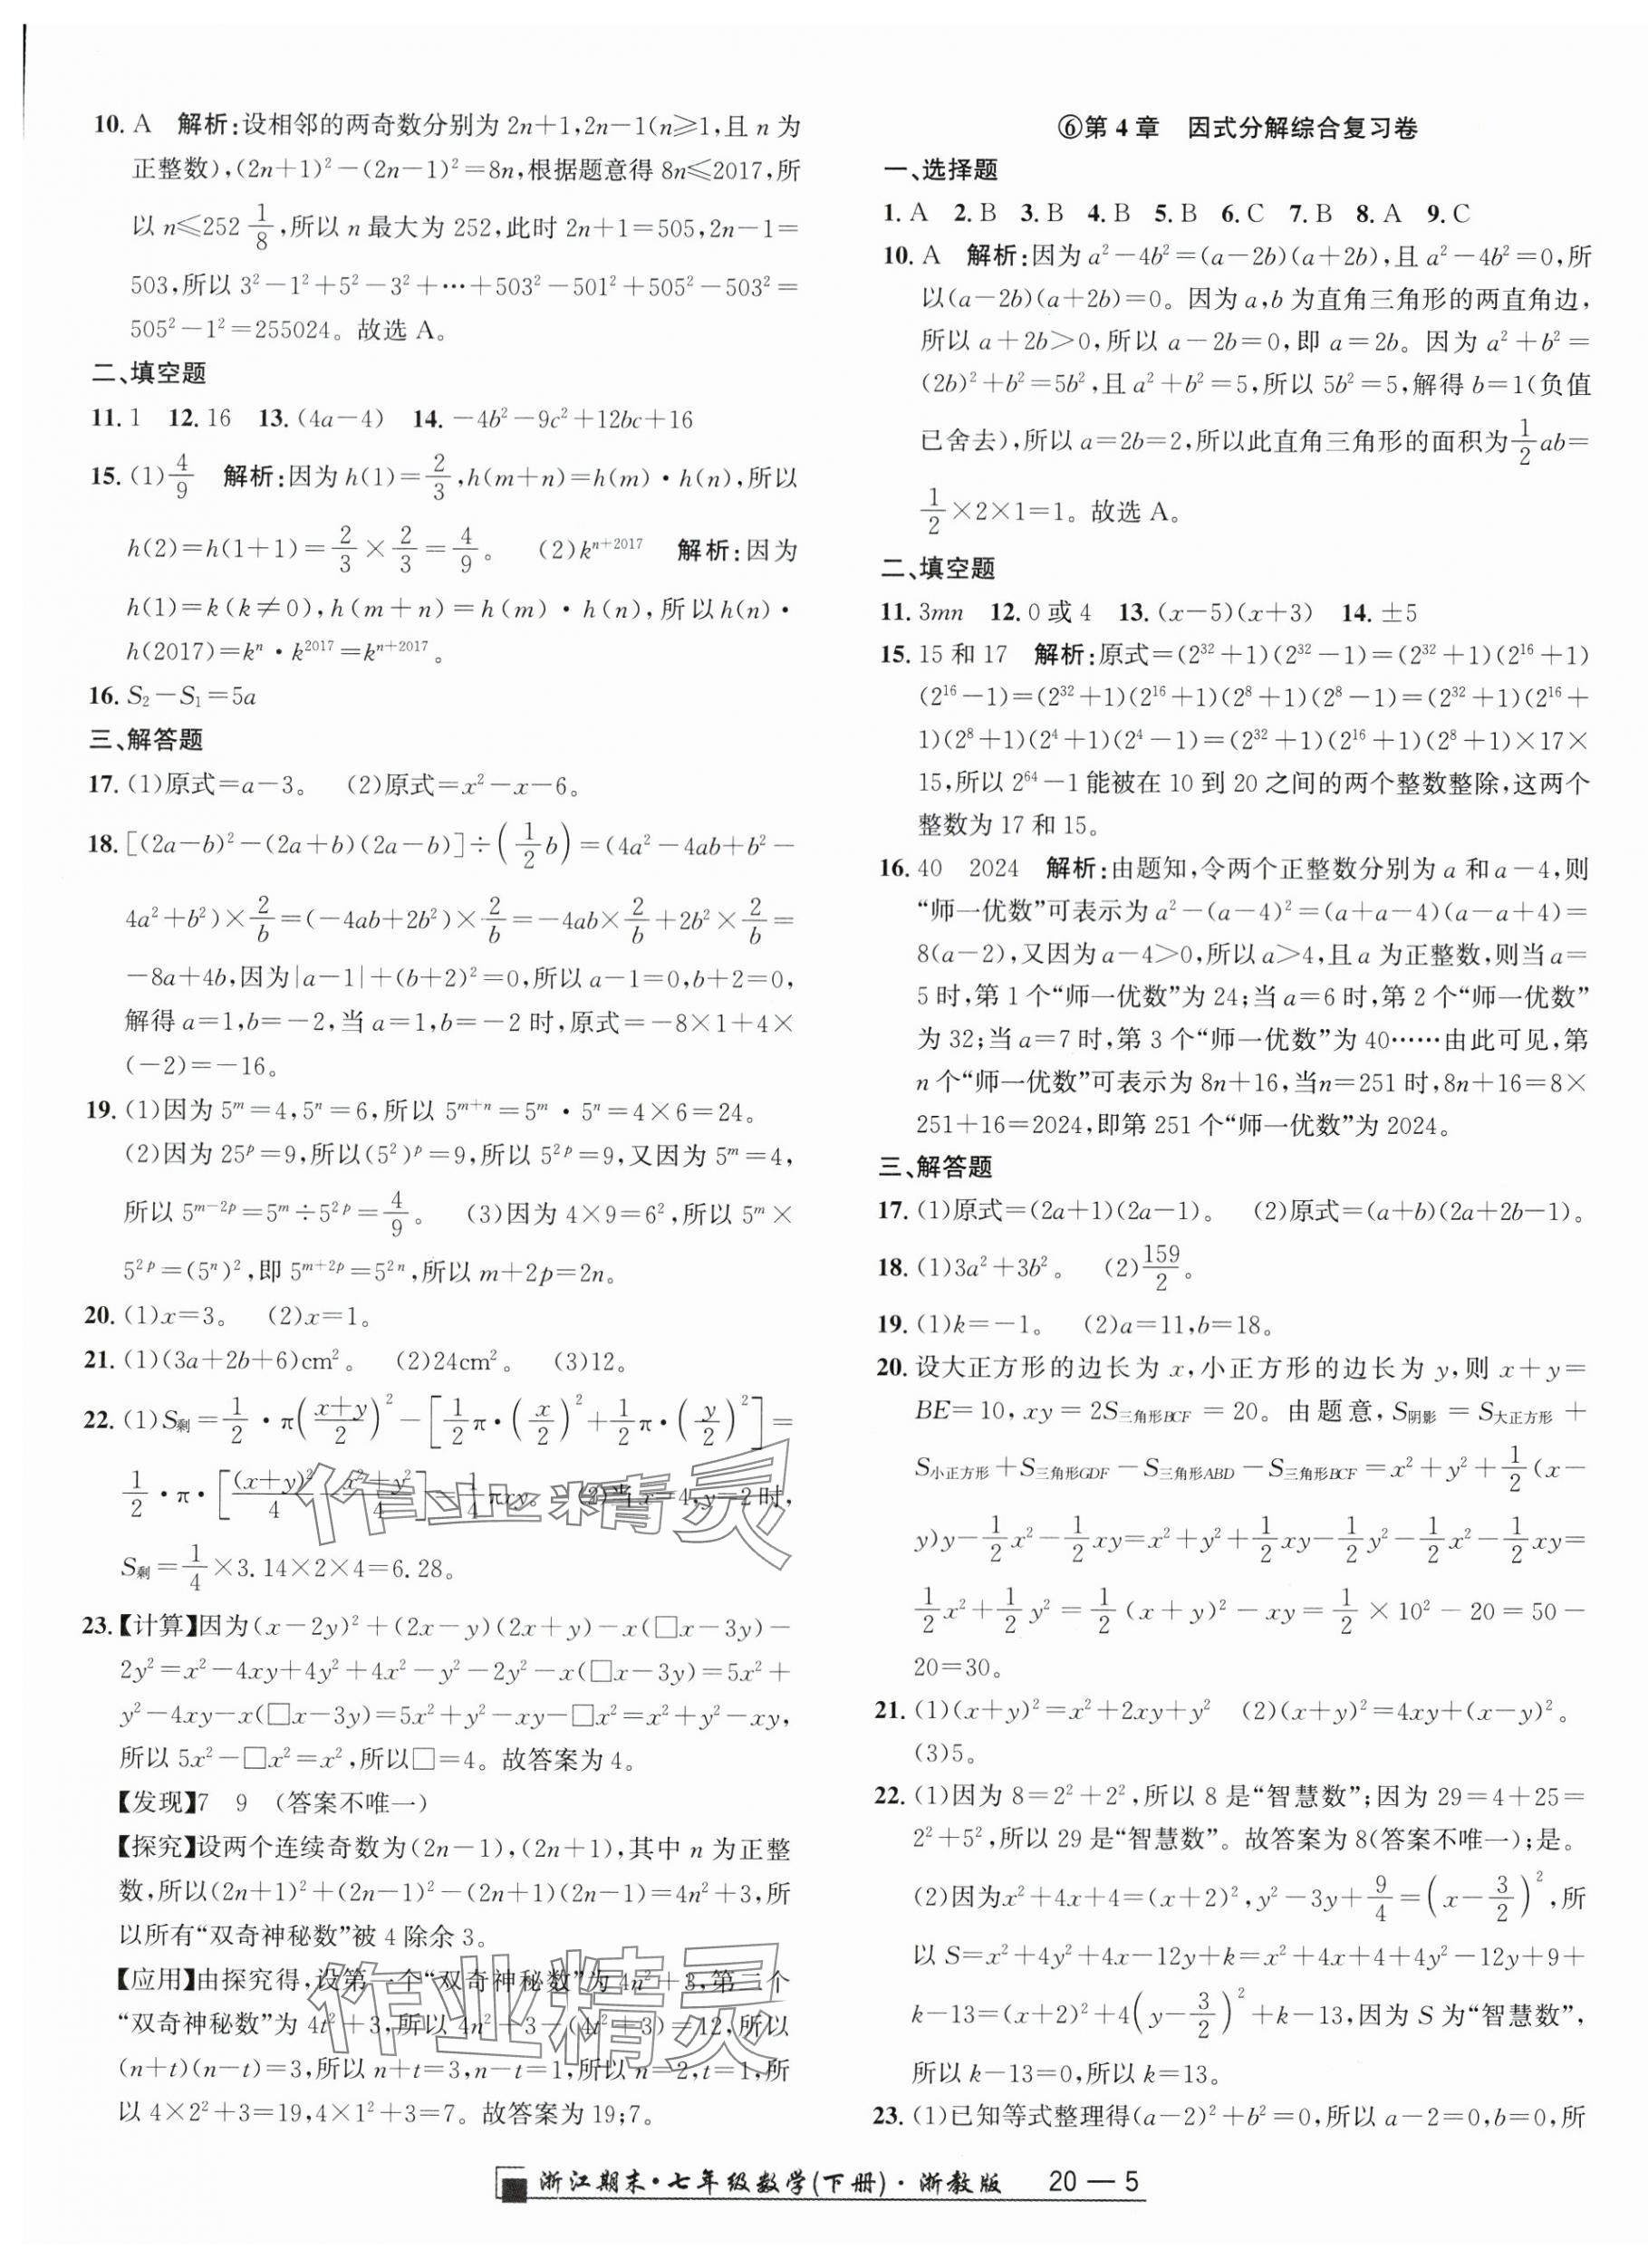 10. A 解析:设相邻的两奇数分别为 2n+1,2n−1(n≥1,且 n 为
正整数),(2n+1)²−(2n−1)²=8n,根据题意得 8n≤2017,所
以 n≤252 1/8,所以 n 最大为 252,此时 2n+1=505,2n−1=
503,所以 3²−1²+5²−3²+…+503²−501²+505²−503²=
505²−1²=255024。故选 A。
二、填空题
11. 1 12. 16 13. (4a−4) 14. −4b²−9c²+12bc+16
15. (1)4/9 解析:因为 h(1)=2/3,h(m+n)=h(m)·h(n),所以
h(2)=h(1+1)=2/3×2/3=4/9。 (2)kⁿ⁺²⁰¹⁷ 解析:因为
h(1)=k(k≠0),h(m+n)=h(m)·h(n),所以h(n)·
h(2017)=kⁿ·k²⁰¹⁷=kⁿ⁺²⁰¹⁷。
16. S₂−S₁=5a
三、解答题
17. (1)原式=a−3。 (2)原式=x²−x−6。
18. [(2a−b)²−(2a+b)(2a−b)]÷(1/2 b)=(4a²−4ab+b²−
4a²+b²)×2/b=(−4ab+2b²)×2/b=−4ab×2/b+2b²×2/b=
−8a+4b,因为|a−1|+(b+2)²=0,所以 a−1=0,b+2=0,
解得 a=1,b=−2,当 a=1,b=−2 时,原式=−8×1+4×
(−2)=−16。
19. (1)因为 5^m=4,5^n=6,所以 5^(m+n)=5^m·5^n=4×6=24。
(2)因为 25^p=9,所以(5²)^p=9,所以 5^(2p)=9,又因为 5^m=4,
所以 5^(m−2p)=5^m÷5^(2p)=4/9。 (3)因为 4×9=6²,所以 5^m×
5^(2p)=(5^n)²,即 5^(m+2p)=5^(2n),所以 m+2p=2n。
20. (1)x=3。 (2)x=1。
21. (1)(3a+2b+6)cm²。 (2)24cm²。 (3)12。
22. (1)S剩=1/2·π((x+y)/2)²−[1/2π·(x/2)²+1/2π·(y/2)²]=
1/2·π·[(x+y)²/4−(x²+y²)/4]=1/4πxy。 (2)当 x=4,y=2时,
S剩=1/4×3.14×2×4=6.28。
23.【计算】因为(x−2y)²+(2x−y)(2x+y)−x(□x−3y)−
2y²=x²−4xy+4y²+4x²−y²−2y²−x(□x−3y)=5x²+
y²−4xy−x(□x−3y)=5x²+y²−xy−□x²=x²+y²−xy,
所以 5x²−□x²=x²,所以□=4。故答案为 4。
【发现】7 9 (答案不唯一)
【探究】设两个连续奇数为(2n−1),(2n+1),其中 n 为正整
数,所以(2n+1)²+(2n−1)²−(2n+1)(2n−1)=4n²+3,所
以所有“双奇神秘数”被 4 除余 3。
【应用】由探究得,设第一个“双奇神秘数”为 4n²+3,第二个
“双奇神秘数”为 4t²+3,所以 4n²+3−(4t²+3)=12,所以
(n+t)(n−t)=3,所以 n+t=3,n−t=1,所以 n=2,t=1,所
以 4×2²+3=19,4×1²+3=7。故答案为 19;7。
⑥第 4 章 因式分解综合复习卷
一、选择题
1. A 2. B 3. B 4. B 5. B 6. C 7. B 8. A 9. C
10. A 解析:因为 a²−4b²=(a−2b)(a+2b),且 a²−4b²=0,所
以(a−2b)(a+2b)=0。因为 a,b 为直角三角形的两直角边,
所以 a+2b>0,所以 a−2b=0,即 a=2b。因为 a²+b²=
(2b)²+b²=5b²,且 a²+b²=5,所以 5b²=5,解得 b=1(负值
已舍去),所以 a=2b=2,所以此直角三角形的面积为1/2 ab=
1/2×2×1=1。故选 A。
二、填空题
11. 3mn 12. 0 或 4 13. (x−5)(x+3) 14. ±5
15. 15 和 17 解析:原式=(2³²+1)(2³²−1)=(2³²+1)(2¹⁶+1)
(2¹⁶−1)=(2³²+1)(2¹⁶+1)(2⁸+1)(2⁸−1)=(2³²+1)(2¹⁶+
1)(2⁸+1)(2⁴+1)(2⁴−1)=(2³²+1)(2¹⁶+1)(2⁸+1)×17×
15,所以 2⁶⁴−1 能被在 10 到 20 之间的两个整数整除,这两个
整数为 17 和 15。
16. 40 2024 解析:由题知,令两个正整数分别为 a 和 a−4,则
“师一优数”可表示为 a²−(a−4)²=(a+a−4)(a−a+4)=
8(a−2),又因为 a−4>0,所以 a>4,且 a 为正整数,则当 a=
5 时,第 1 个“师一优数”为 24;当 a=6 时,第 2 个“师一优数”
为 32;当 a=7 时,第 3 个“师一优数”为 40……由此可见,第
n 个“师一优数”可表示为 8n+16,当n=251 时,8n+16=8×
251+16=2024,即第 251 个“师一优数”为 2024。
三、解答题
17. (1)原式=(2a+1)(2a−1)。 (2)原式=(a+b)(2a+2b−1)。
18. (1)3a²+3b²。 (2)159/2。
19. (1)k=−1。 (2)a=11,b=18。
20. 设大正方形的边长为 x,小正方形的边长为 y,则 x+y=
BE=10,xy=2S三角形BCF=20。由题意,S阴影=S大正方形+
S小正方形+S三角形GDF−S三角形ABD−S三角形BCF=x²+y²+1/2(x−
y)y−1/2x²−1/2xy=x²+y²+1/2xy−1/2y²−1/2x²−1/2xy=
1/2x²+1/2y²=1/2(x+y)²−xy=1/2×10²−20=50−
20=30。
21. (1)(x+y)²=x²+2xy+y² (2)(x+y)²=4xy+(x−y)²。
(3)5。
22. (1)因为 8=2²+2²,所以 8 是“智慧数”;因为 29=4+25=
2²+5²,所以 29 是“智慧数”。故答案为 8(答案不唯一);是。
(2)因为x²+4x+4=(x+2)²,y²−3y+9/4=(x−3/2)²,所
以 S=x²+4y²+4x−12y+k=x²+4x+4+4y²−12y+9+
k−13=(x+2)²+4(y−3/2)²+k−13,因为 S 为“智慧数”,
所以 k−13=0,所以 k=13。
23. (1)已知等式整理得(a−2)²+b²=0,所以 a−2=0,b=0,所
作业精灵
作业精灵
浙江期末·七年级数学(下册)·浙教版 20—5